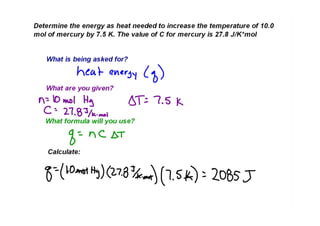 Determine the energy as heat needed to increase the temperature of 10.0
mol of mercury by 7.5 K. The value of C for mercury is 27.8 J/K*mol
What is being asked for?
heat energy (q)
What are you given?
n=10 mol Hg ΔT= 7.5 K
C = 27.8 J/K·mol
What formula will you use?
q = n C ΔT
Calculate:
q=(10 mol Hg)(27.8 J/K·mol)(7.5 K) = 2085 J